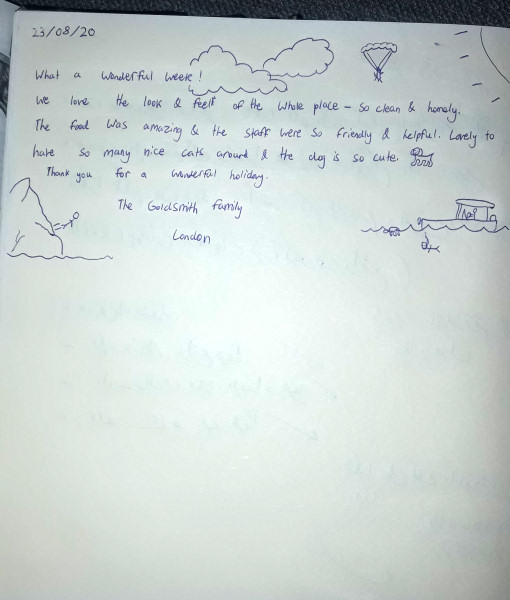 23/08/20
What a wonderful week!
We love the look & feel of the whole place - so clean & homely.
The food was amazing & the staff were so friendly & helpful. Lovely to
have so many nice cats around & the dog is so cute.
Thank you for a wonderful holiday.
The Goldsmith Family
London